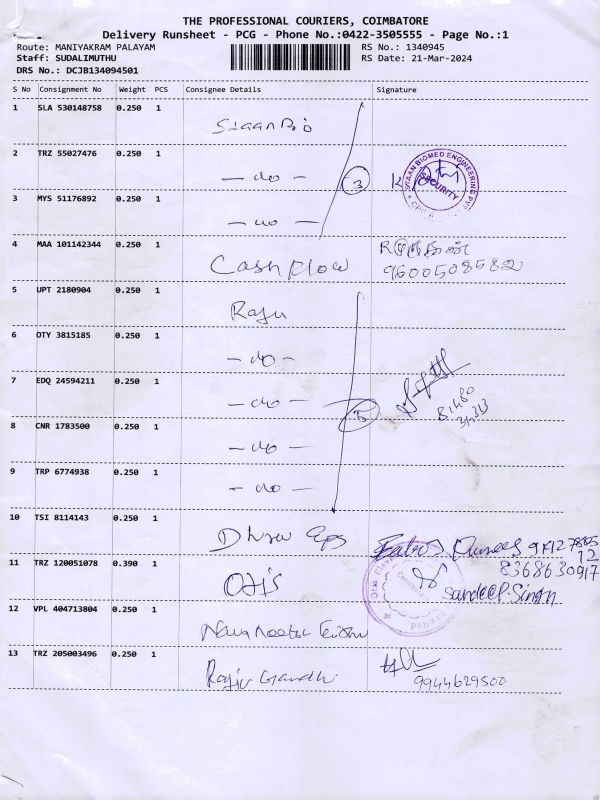 THE PROFESSIONAL COURIERS, COIMBATORE
Delivery Runsheet - PCG - Phone No.:0422-3505555 - Page No.:1
Route: MANIYAKRAM PALAYAM RS No.: 1340945
Staff: SUDALIMUTHU RS Date: 21-Mar-2024
DRS No.: DCJB134094501
S No Consignment No Weight PCS Consignee Details Signature
1 SLA 530148758 0.250 1
2 TRZ 55027476 0.250 1 - do - 3
STAAN BIOMED ENGINEERING PVT
SECURITY
3 MYS 51176892 0.250 1 - do -
4 MAA 101142344 0.250 1 Cash flow
9600508582
5 UPT 2180904 0.250 1 Raju
6 OTY 3815185 0.250 1 - do -
7 EDQ 24594211 0.250 1 - do -
8 CNR 1783500 0.250 1 - do - 5
9 TRP 6774938 0.250 1 - do -
10 TSI 8114143 0.250 1
11 TRZ 120051078 0.390 1 Otis
8368630917
Sandeep Singh
12 VPL 404713804 0.250 1
13 TRZ 205003496 0.250 1 Rajiv Gandhi
9944629500